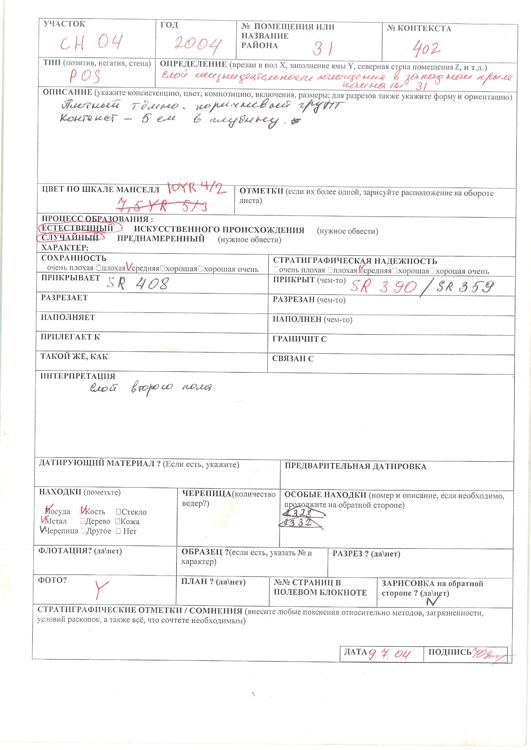 УЧАСТОК CH 04 ГОД 2004 № ПОМЕЩЕНИЯ ИЛИ НАЗВАНИЕ РАЙОНА 31 № КОНТЕКСТА 402
ТИП (позитив, негатив, стена) POS
ОПРЕДЕЛЕНИЕ (врезан в пол X, заполнение ямы Y, северная стена помещения Z, и т.д.)
слой жизнедеятельности помещения в западном крыле комната 31
ОПИСАНИЕ (укажите консистенцию, цвет, композицию, включения, размеры; для разрезов также укажите форму и ориентацию)
Плотный тёмно-коричневый грунт
Контекст – 5 см в глубину.
ЦВЕТ ПО ШКАЛЕ МАНСЕЛЛ 10YR 4/2
7,5 YR 5/3
ОТМЕТКИ (если их более одной, зарисуйте расположение на обороте листа)
ПРОЦЕСС ОБРАЗОВАНИЯ :
ЕСТЕСТВЕННЫЙ ИСКУССТВЕННОГО ПРОИСХОЖДЕНИЯ (нужное обвести)
СЛУЧАЙНЫЙ ПРЕДНАМЕРЕННЫЙ (нужное обвести)
ХАРАКТЕР:
СОХРАННОСТЬ
очень плохая □плохая V средняя □хорошая □хорошая очень
СТРАТИГРАФИЧЕСКАЯ НАДЕЖНОСТЬ
□очень плохая □плохая V средняя □хорошая □хорошая очень
ПРИКРЫВАЕТ SR 408
ПРИКРЫТ (чем-то) SR 390 / SR 359
РАЗРЕЗАЕТ
РАЗРЕЗАН (чем-то)
НАПОЛНЯЕТ
НАПОЛНЕН (чем-то)
ПРИЛЕГАЕТ К
ГРАНИЧИТ С
ТАКОЙ ЖЕ, КАК
СВЯЗАН С
ИНТЕРПРЕТАЦИЯ
слой второго пола
ДАТИРУЮЩИЙ МАТЕРИАЛ ? (Если есть, укажите)
ПРЕДВАРИТЕЛЬНАЯ ДАТИРОВКА
НАХОДКИ (пометьте)
V Посуда V Кость □Стекло
V Метал □Дерево □Кожа
V Черепица □Другое □ Нет
ЧЕРЕПИЦА(количество ведер?)
ОСОБЫЕ НАХОДКИ (номер и описание, если необходимо, продолжите на обратной стороне)
ФЛОТАЦИЯ? (да\нет)
ОБРАЗЕЦ ?(если есть, указать № и характер)
РАЗРЕЗ ? (да\нет)
ФОТО? Y
ПЛАН ? (да\нет)
№№ СТРАНИЦ В ПОЛЕВОМ БЛОКНОТЕ
ЗАРИСОВКА на обратной стороне ? (да\нет) N
СТРАТИГРАФИЧЕСКИЕ ОТМЕТКИ / СОМНЕНИЯ (внесите любые пояснения относительно методов, загрязненности, условий раскопок, а также всё, что сочтете необходимым)
ДАТА 9.7.04 ПОДПИСЬ